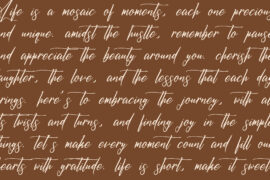 Life is a mosaic of moments, each one precious
and unique. amidst the hustle, remember to pause
and appreciate the beauty around you. cherish the
laughter, the love, and the lessons that each day
brings. here's to embracing the journey, with all
its twists and turns, and finding joy in the simple
things. let's make every moment count and fill our
hearts with gratitude. life is short, make it sweet